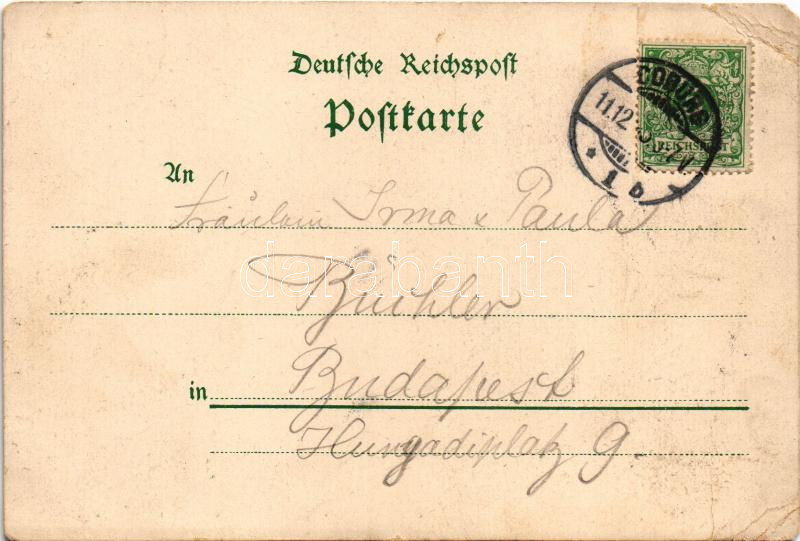 Deutsche Reichspost
Postkarte
COBURG
11.12
1 b
REICHSPOST
An
Fräulein Irma & Paula
Büchler
darabanth
in Budapest
Hunyadiplatz 9.